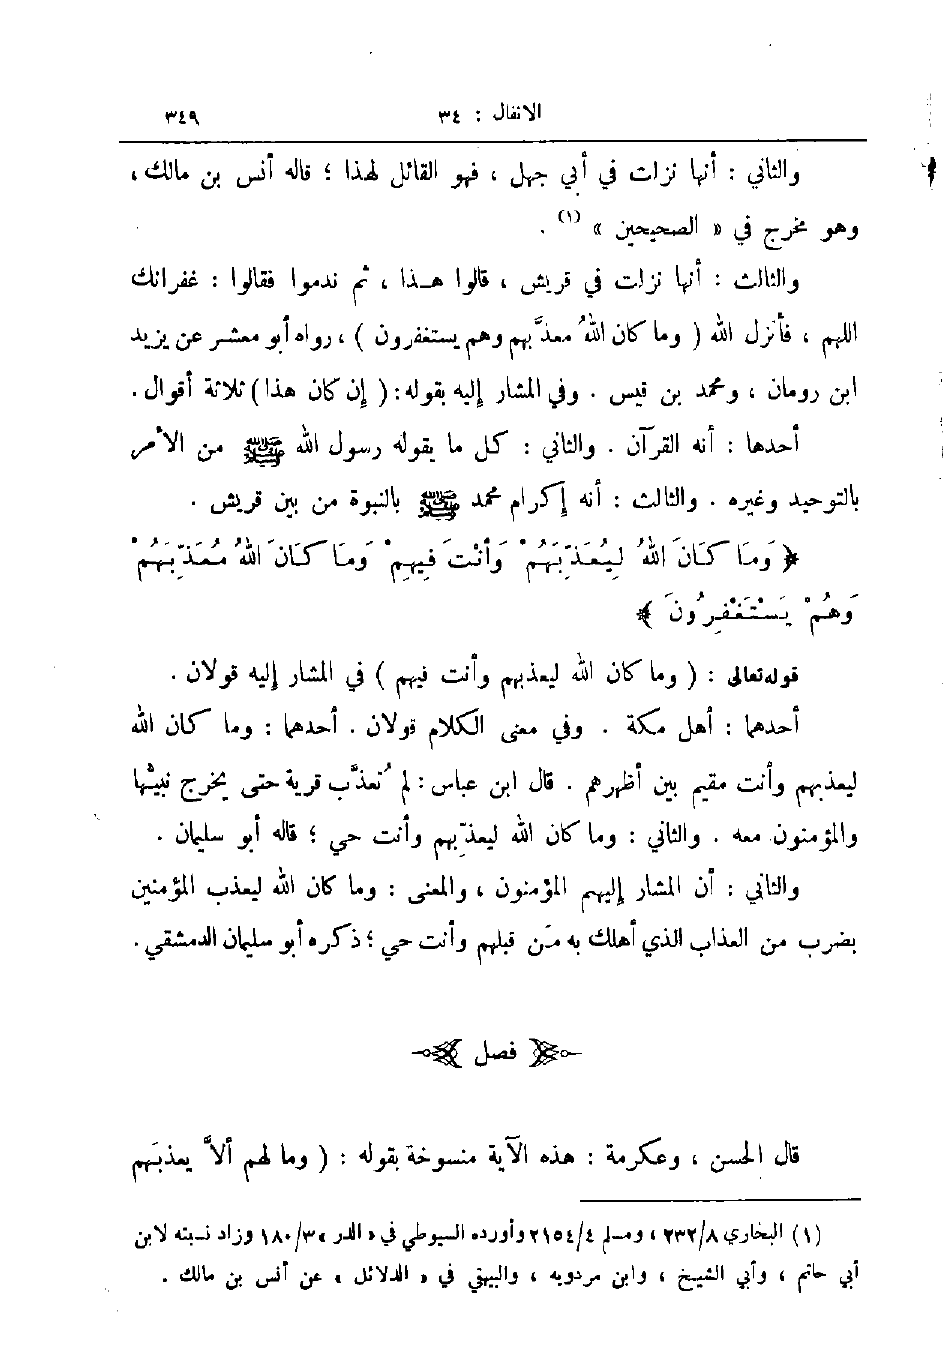 الانفال : ٣٤ ٣٤٩
والثاني : أنها نزلت في أبي جهل ، فهو القائل لهذا ؛ قاله أنس بن مالك ،
وهو مخرج في « الصحيحين » (١) .
والثالث : أنها نزلت في قريش ، قالوا هـذا ، ثم ندموا فقالوا : غفرانك
اللهم ، فأنزل الله ( وما كان اللهُ معذِّبهم وهم يستغفرون ) ، رواه أبو معشر عن يزيد
ابن رومان ، ومحمد بن قيس . وفي المشار إليه بقوله : ( إن كان هذا ) ثلاثة أقوال .
أحدها : أنه القرآن . والثاني : كل ما يقوله رسول الله ﷺ من الأمر
بالتوحيد وغيره . والثالث : أنه إكرام محمد ﷺ بالنبوة من بين قريش .
﴿ وَمَا كَانَ اللهُ لِيُعَذِّبَهُمْ وَأَنْتَ فِيهِمْ وَمَا كَانَ اللهُ مُعَذِّبَهُمْ
وَهُمْ يَسْتَغْفِرُونَ ﴾
قوله تعالى : ( وما كان الله ليعذبهم وأنت فيهم ) في المشار إليه قولان .
أحدهما : أهل مكة . وفي معنى الكلام قولان . أحدهما : وما كان الله
ليعذبهم وأنت مقيم بين أظهرهم . قال ابن عباس : لم تُعذَّب قرية حتى يخرج نبيُّها
والمؤمنون معه . والثاني : وما كان الله ليعذِّبهم وأنت حي ؛ قاله أبو سليمان .
والثاني : أن المشار إليهم المؤمنون ، والمعنى : وما كان الله ليعذب المؤمنين
بضرب من العذاب الذي أهلك به مَن قبلهم وأنت حي ؛ ذكره أبو سليمان الدمشقي .
فصل
قال الحسن ، وعكرمة : هذه الآية منسوخة بقوله : ( وما لهم ألاَّ يعذبَهم
(١) البخاري ٢٣٢/٨ ، ومسلم ٢١٥٤/٤ وأورده السيوطي في « الدر » ١٨٠/٣ وزاد نسبته لابن
أبي حاتم ، وأبي الشيخ ، وابن مردويه ، والبيهقي في « الدلائل » عن أنس بن مالك .